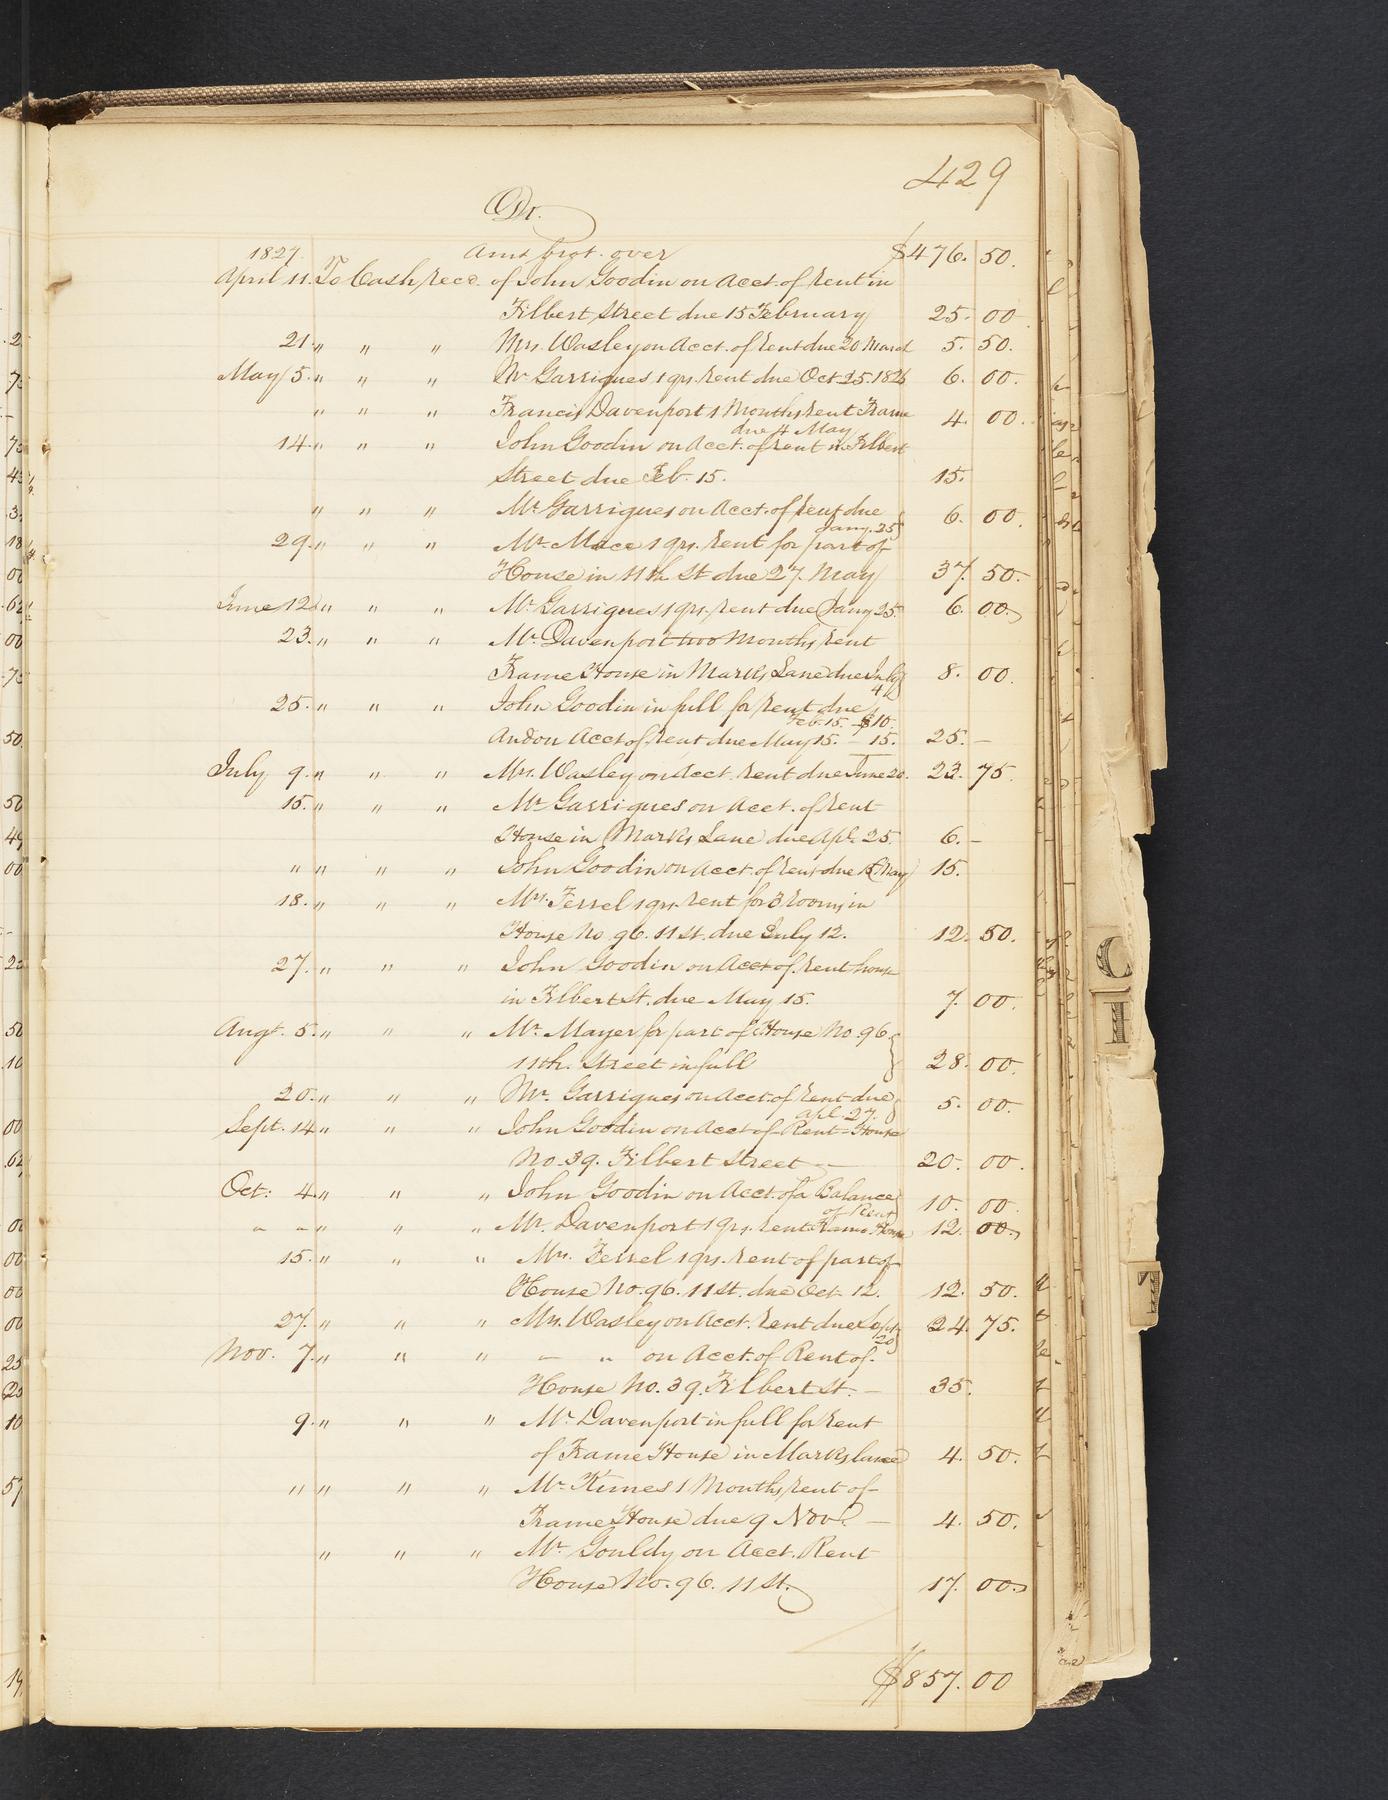 429
Dr.
1827. Amt brot. over $476. 50.
April 11. To Cash recd. of John Goodin on Acct. of rent in
Filbert Street due 15 February 25. 00
21. " " " Mrs. Wasley on Acct. of rent due 20 March 5. 50.
May 5. " " " Mr Garrigues 1 qrs. rent due Oct 25. 1826 6. 00.
" " " Francis Davenport 1 Months rent Frame 4. 00.
due 4 May
14. " " " John Goodin on Acct. of rent in Filbert
Street due Feb. 15. 15.
" " " Mr. Garrigues on Acct. of rent due 6. 00.
Jany. 25
29. " " " Mr. Mace 1 qrs. rent for part of
House in 11th St due 27. May 37. 50.
June 12. " " " Mr. Garrigues 1 qrs. rent due Jany 25. 6. 00.
23. " " " Mr. Davenport two Months rent
Frame House in Marks Lane due July 8. 00.
4
25. " " " John Goodin in full for rent due
Feb. 15. $10.
And on Acct of rent due May 15. - 15. 25. -
July 9. " " " Mrs. Wasley on Acct. rent due June 20. 23. 75.
15. " " " Mr Garrigues on Acct. of rent
House in Marks Lane due Apl. 25. 6. -
" " " " John Goodin on Acct. of rent due 15 May 15.
18. " " " Mrs. Ferrel 1 qrs. rent for 3 rooms in
House No. 96. 11 St. due July 12. 12. 50.
27. " " " John Goodin on Acct of rent house
in Filbert St. due May 15. 7. 00.
Augt. 5. " " " Mr. Mayer for part of House No. 96
11th. Street in full 28. 00.
20. " " " Mr. Garrigues on Acct. of rent due 5. 00.
apl. 27.
Sept. 14 " " " John Goodin on Acct of Rent - House
No. 39. Filbert Street - 20. 00.
Oct: 4. " " " John Goodin on Acct. of a Balance 10. 00.
of Rent
" " " " " Mr. Davenport 1 qrs. rent Frame House 12. 00.
15. " " " Mrs. Ferrel 1 qrs. rent of part of
House No. 96. 11 St. due Oct. 12. 12. 50.
27. " " " Mrs. Wasley on Acct. rent due Sept 24. 75.
20
Nov. 7. " " " - " on Acct. of Rent of.
House No. 39. Filbert St. - 35.
9. " " " Mr. Davenport in full for rent
of Frame House in Marks lane 4. 50.
" " " " Mr. Kimes 1 Months rent of
Frame House due 9 Nov. - 4. 50.
" " " Mr. Gouldy on Acct. Rent
House No. 96. 11 St. 17. 00.
$857. 00